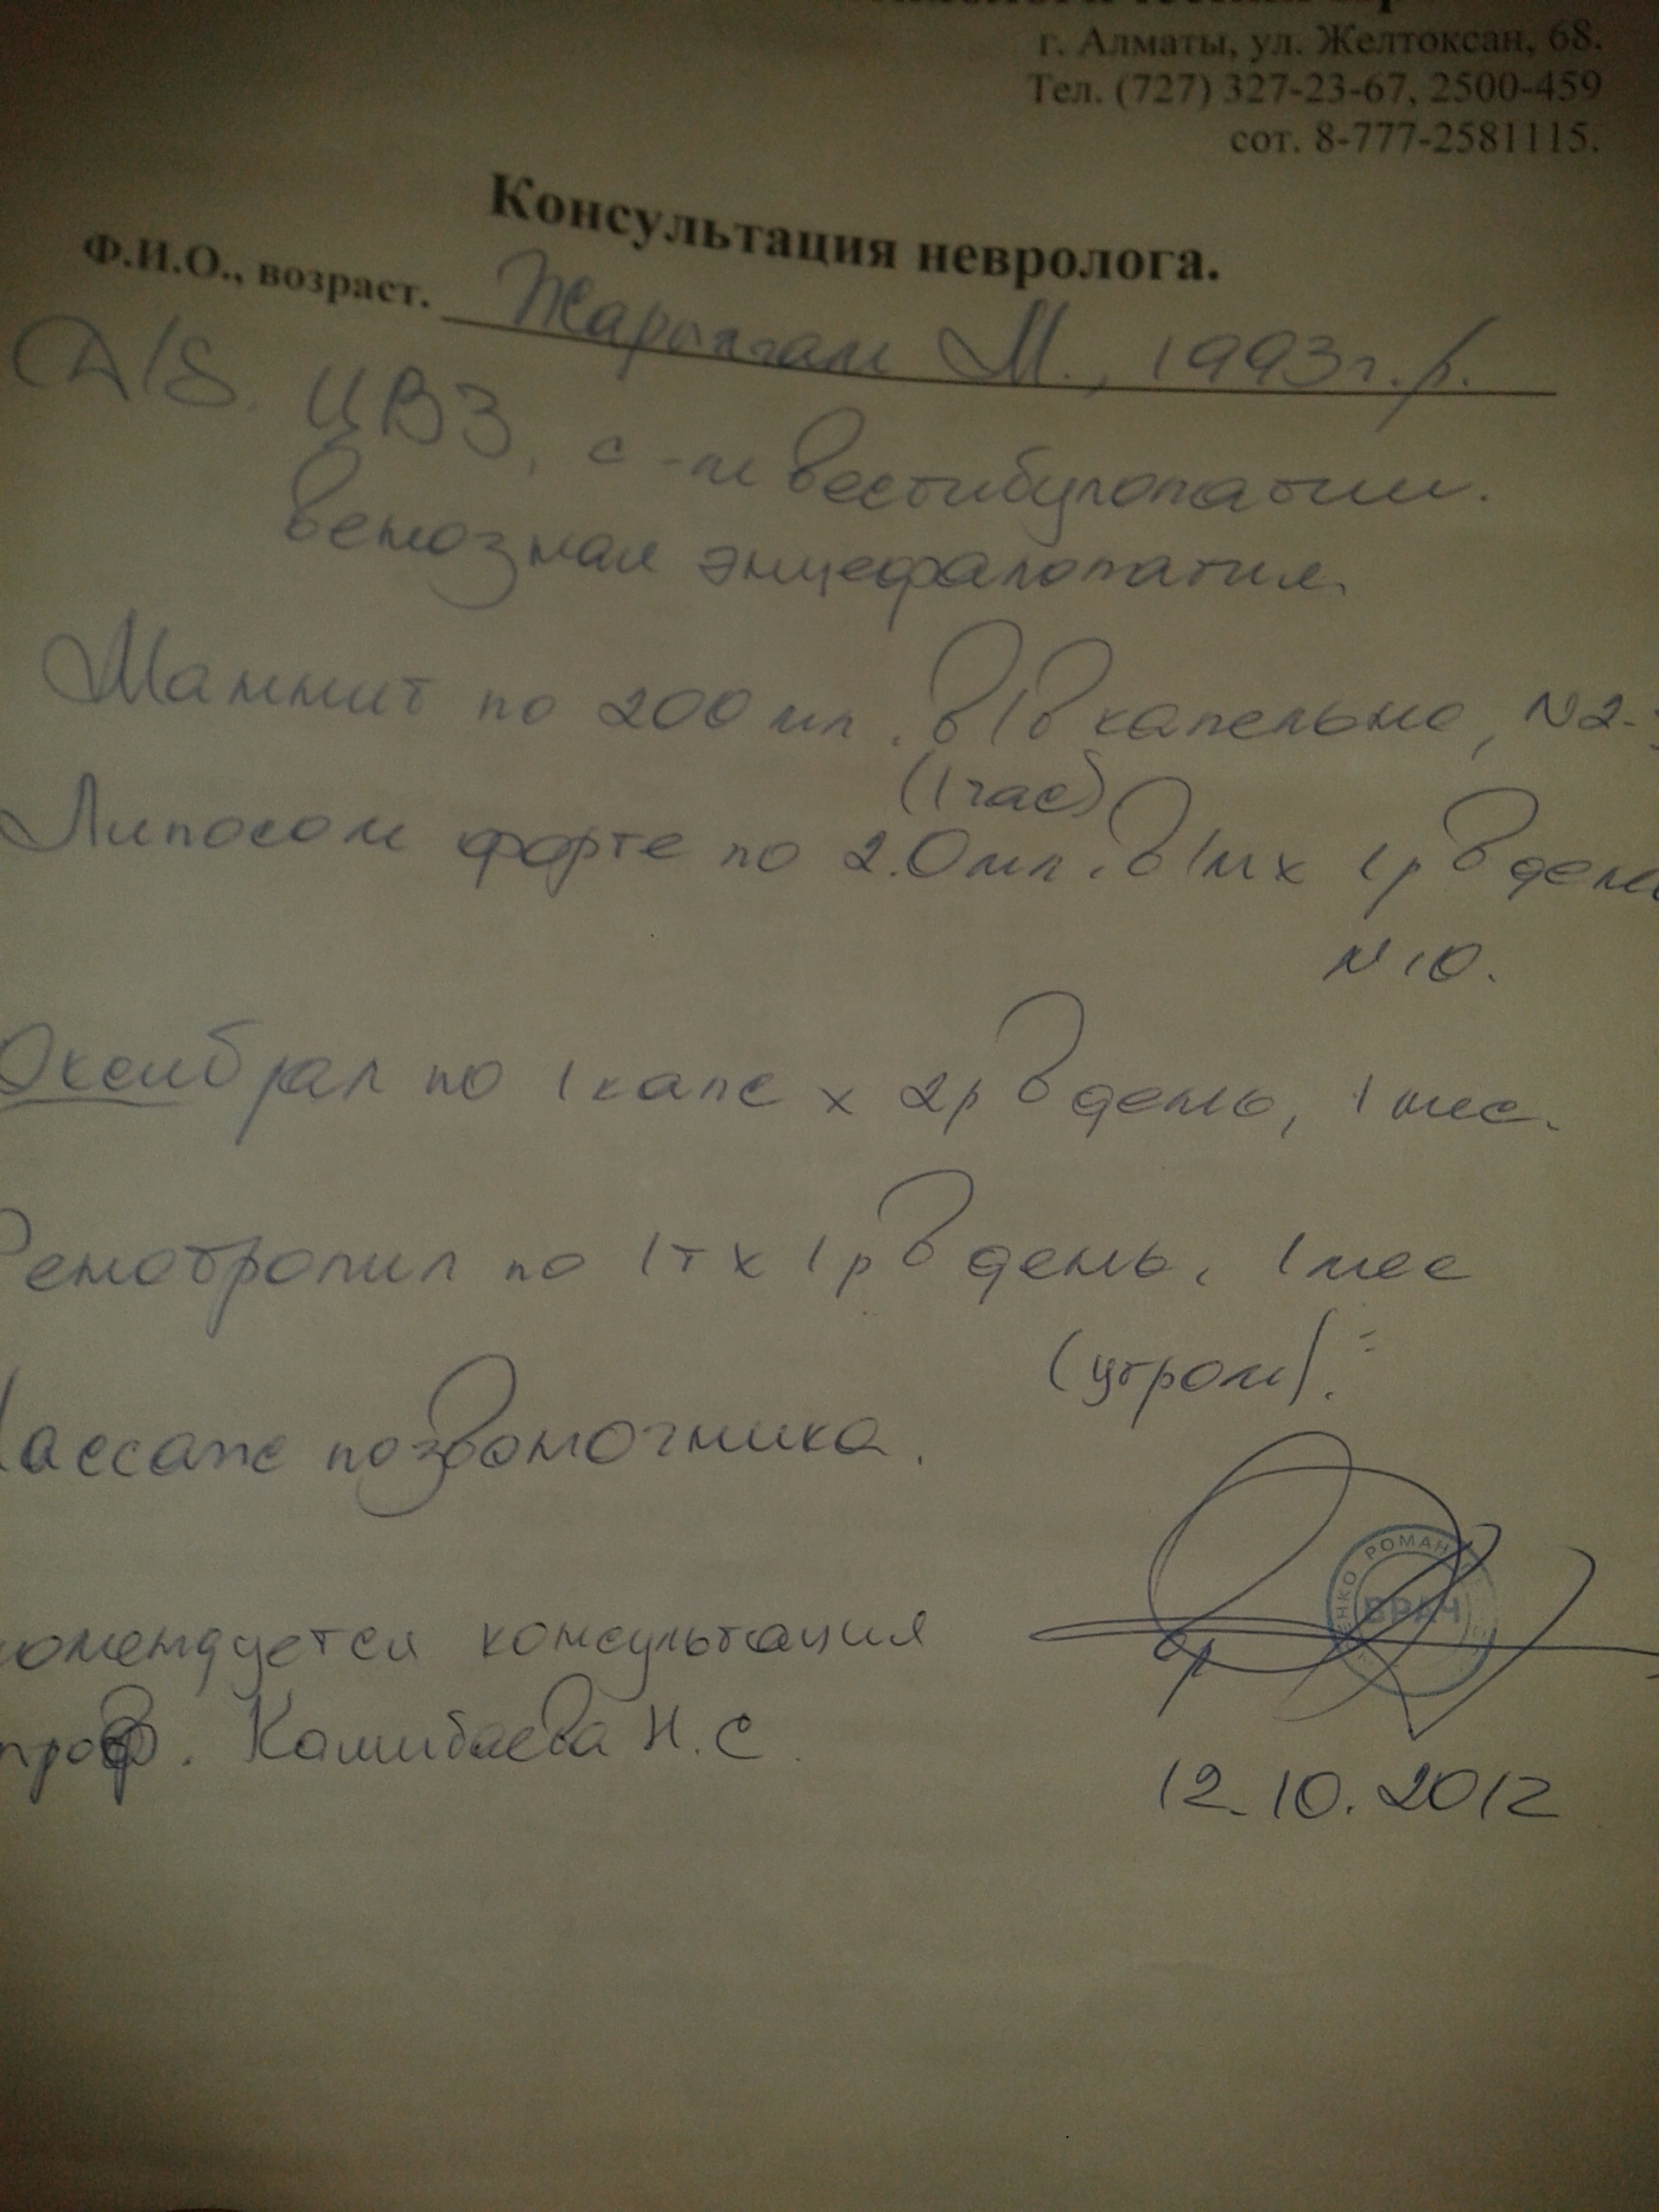 г. Алматы, ул. Желтоксан, 68.
Тел. (727) 327-23-67, 2500-459
сот. 8-777-2581115.
Консультация невролога.
Ф.И.О., возраст. М., 1993г.р.
D/S. ЦВЗ, с-м вестибулопатии.
Венозная энцефалопатия.
Маннит по 200 мл. в/в капельно, N2-
(1 час)
Липосом форте по 2.0 мл. в/м х 1р в день
N10.
Оксибрал по 1 капс х 2р в день, 1 мес.
Ремотропил по 1т х 1р в день, 1 мес
(утром).
Массаж позвоночника.
комендуется консультация
проф. Камибаева Н.С.
ЕНКО РОМАН
ВРАЧ
12.10.2012